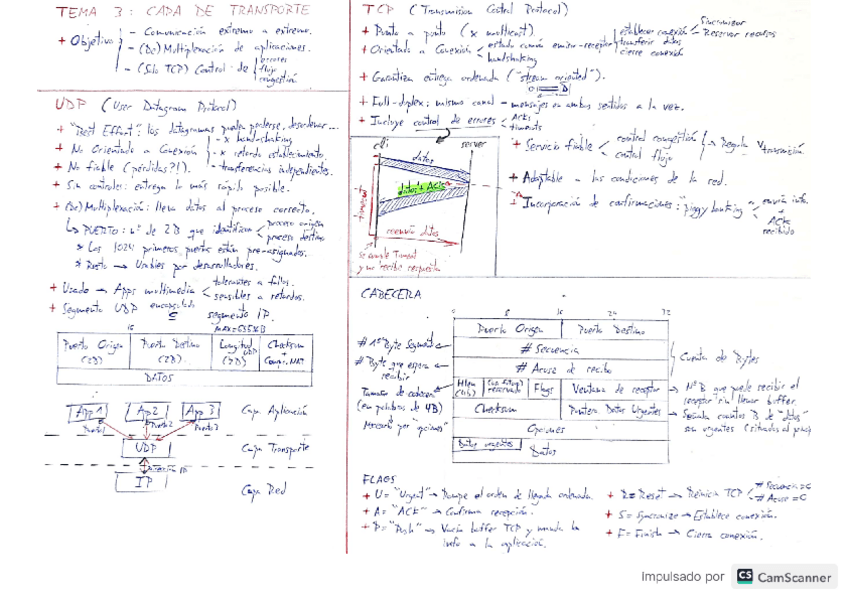 TEMA 3: CAPA DE TRANSPORTE
+ Objetivo
- Comunicación extremo a extremo.
- (De)Multiplexación de aplicaciones.
- (Solo TCP) Control de
errores
flujo
congestión
UDP (User Datagram Protocol)
+ "Best Effort": los datagramas pueden perderse, desordenar...
+ No Orientado a Conexión
- x handshaking
- x retardo establecimiento
- transferencias independientes.
+ No fiable (pérdidas?!).
+ Sin controles: entrega lo más rápido posible.
+ (De)Multiplexación: lleva datos al proceso correcto.
↳ PUERTO: nº de 2B que identifica
proceso origen
proceso destino
* Los 1024 primeros puertos están preasignados.
* Resto → Usables por desarrolladores.
+ Usado → Apps multimedia
tolerantes a fallos.
sensibles a retardos.
+ Segmento UDP encapsulado
segmento IP.
16
Puerto Origen (2B)
Puerto Destino (2B)
Longitud UDP (2B)
Checksum
DATOS
App 1
App 2
App 3
Capa Aplicación
Puerto1
Puerto2
Puerto3
UDP
Capa Transporte
IP
Capa Red
TCP (Transmission Control Protocol)
+ Punto a punto (x multicast)
+ Orientado a Conexión
estado común emisor-receptor
handshaking
establecer conexión
Sincronizar
Reservar recursos
transferir datos
cierre conexión
+ Garantiza entrega ordenada ("stream oriented").
+ Full-duplex: mismo canal → mensajes en ambos sentidos a la vez.
+ Incluye control de errores
ACKs
timeouts
cli
server
datos
datos + ACK
timeout
reenvío datos
se cumple Timeout
y no recibe respuesta
+ Servicio fiable
control congestión
control flujo
→ Regula V transmisión.
+ Adaptable → las condiciones de la red.
+ Incorporación de confirmaciones: "piggybacking"
envía info.
+
ACK
recibido
CABECERA
0
8
16
24
32
Puerto Origen
Puerto Destino
# 1er Byte Segmento
# Secuencia
Cuenta de Bytes
# Byte que espera recibir
# Acuse de recibo
Tamaño de cabecera
(en palabras de 4B)
Mínimo por "opciones"
Hlen
reservado
Flags
Ventana de receptor
→ Nº B que puede recibir el
receptor sin llenar buffer.
Checksum
Puntero Datos Urgentes
→ Señala cuántos B de "datos"
son urgentes
Opciones
Datos urgentes
Datos
FLAGS
+ U = "Urgent" → Rompe el orden de llegada ordenada.
+ A = "ACK" → Confirma recepción.
+ P = "Push" → Vacía buffer TCP y manda la
info a la aplicación.
+ R = Reset → Reinicia TCP
# Secuencia = 0
# Acuse = 0
+ S = Syncronize → Establece conexión.
+ F = Finish → Cierra conexión.
Impulsado por CS CamScanner